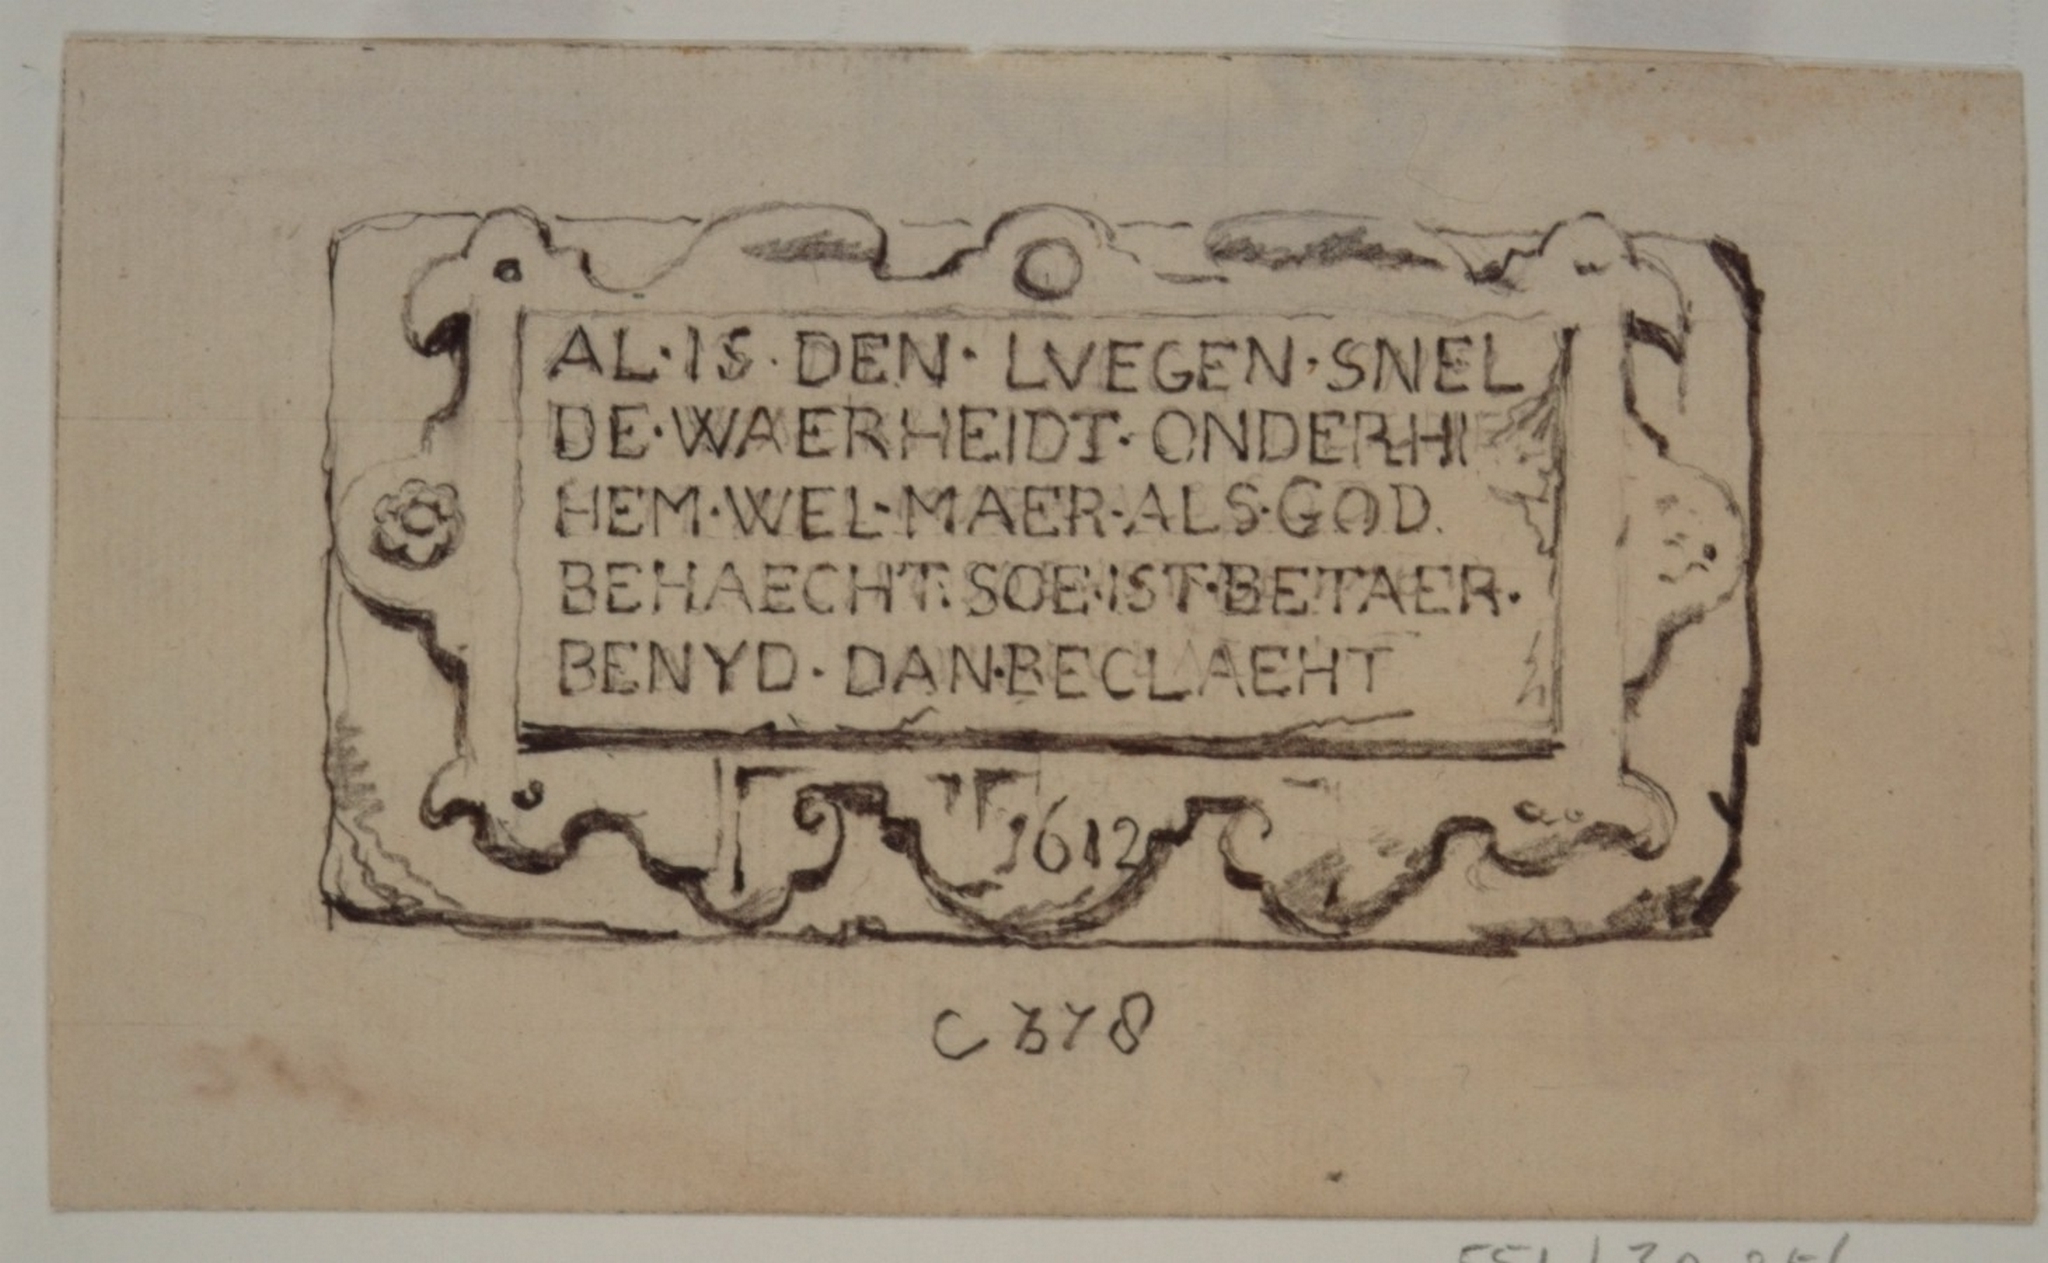 AL·IS·DEN·LVEGEN·SNEL
DE·WAERHEIDT·ONDERHI
HEM·WEL·MAER·ALS·GOD.
BEHAECHT·SOE·IST·BETAER·
BENYD·DAN·BECLAEHT
1612
C 378